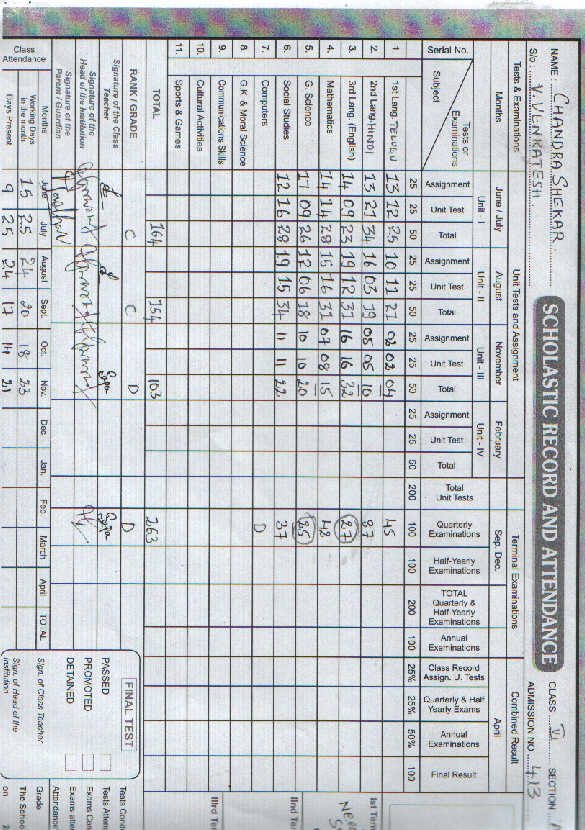 SCHOLASTIC RECORD AND ATTENDANCE
NAME : CHANDRA SHEKAR CLASS VI SECTION
S/o. V. VENKATESH ADMISSION NO. 413
Tests & Examinations Unit Tests and Assignment Terminal Examinations Combined Result
Months June / July August November February Sep. Dec. April
Unit - I Unit - II Unit - III Unit - IV
Serial No. Subject Tests or Examinations Assignment Unit Test Total Assignment Unit Test Total Assignment Unit Test Total Assignment Unit Test Total Total Unit Tests Quarterly Examinations Half-Yearly Examinations TOTAL Quarterly & Half-Yearly Examinations Annual Examinations Class Record Assign. U. Tests Quarterly & Half Yearly Exams Annual Examinations Final Result
25 25 50 25 25 50 25 25 50 25 25 50 200 100 100 200 100 25% 25% 50% 100
1. 1st Lang. TELUGU 13 12 25 10 11 21 02 02 04 45
2. 2nd Lang. HINDI 13 21 34 16 03 19 05 05 10 87
3. 3rd Lang. (English) 14 09 23 19 12 31 16 16 32 27
4. Mathematics 14 14 28 15 16 31 07 08 15 42
5. G. Science 17 09 26 12 06 18 10 10 20 25
6. Social Studies 12 16 28 19 15 34 11 11 22 37
7. Computers D
8. G.K. & Moral Science
9. Communications Skills
10. Cultural Activities
11. Sports & Games
TOTAL 164 154 103 263
RANK / GRADE C C D D
Signature of the Class Teacher
Signature of the Head of the Institution
Signature of the Parent / Guardian
Class Attendance
Months June July August Sept. Oct. Nov. Dec. Jan. Feb. March April TOTAL
Working Days in the month 15 25 24 20 18 23
Days Present 9 25 24 17 14 21
FINAL TEST
PASSED
PROMOTED
DETAINED
Sign. of Class Teacher
Sign. of Head of the Institution
Ist Term
IInd Te
IIIrd Te
Tests Cond
Tests Atten
Exams Con
Exams atte
Attendance
Grade
The Schoo
on